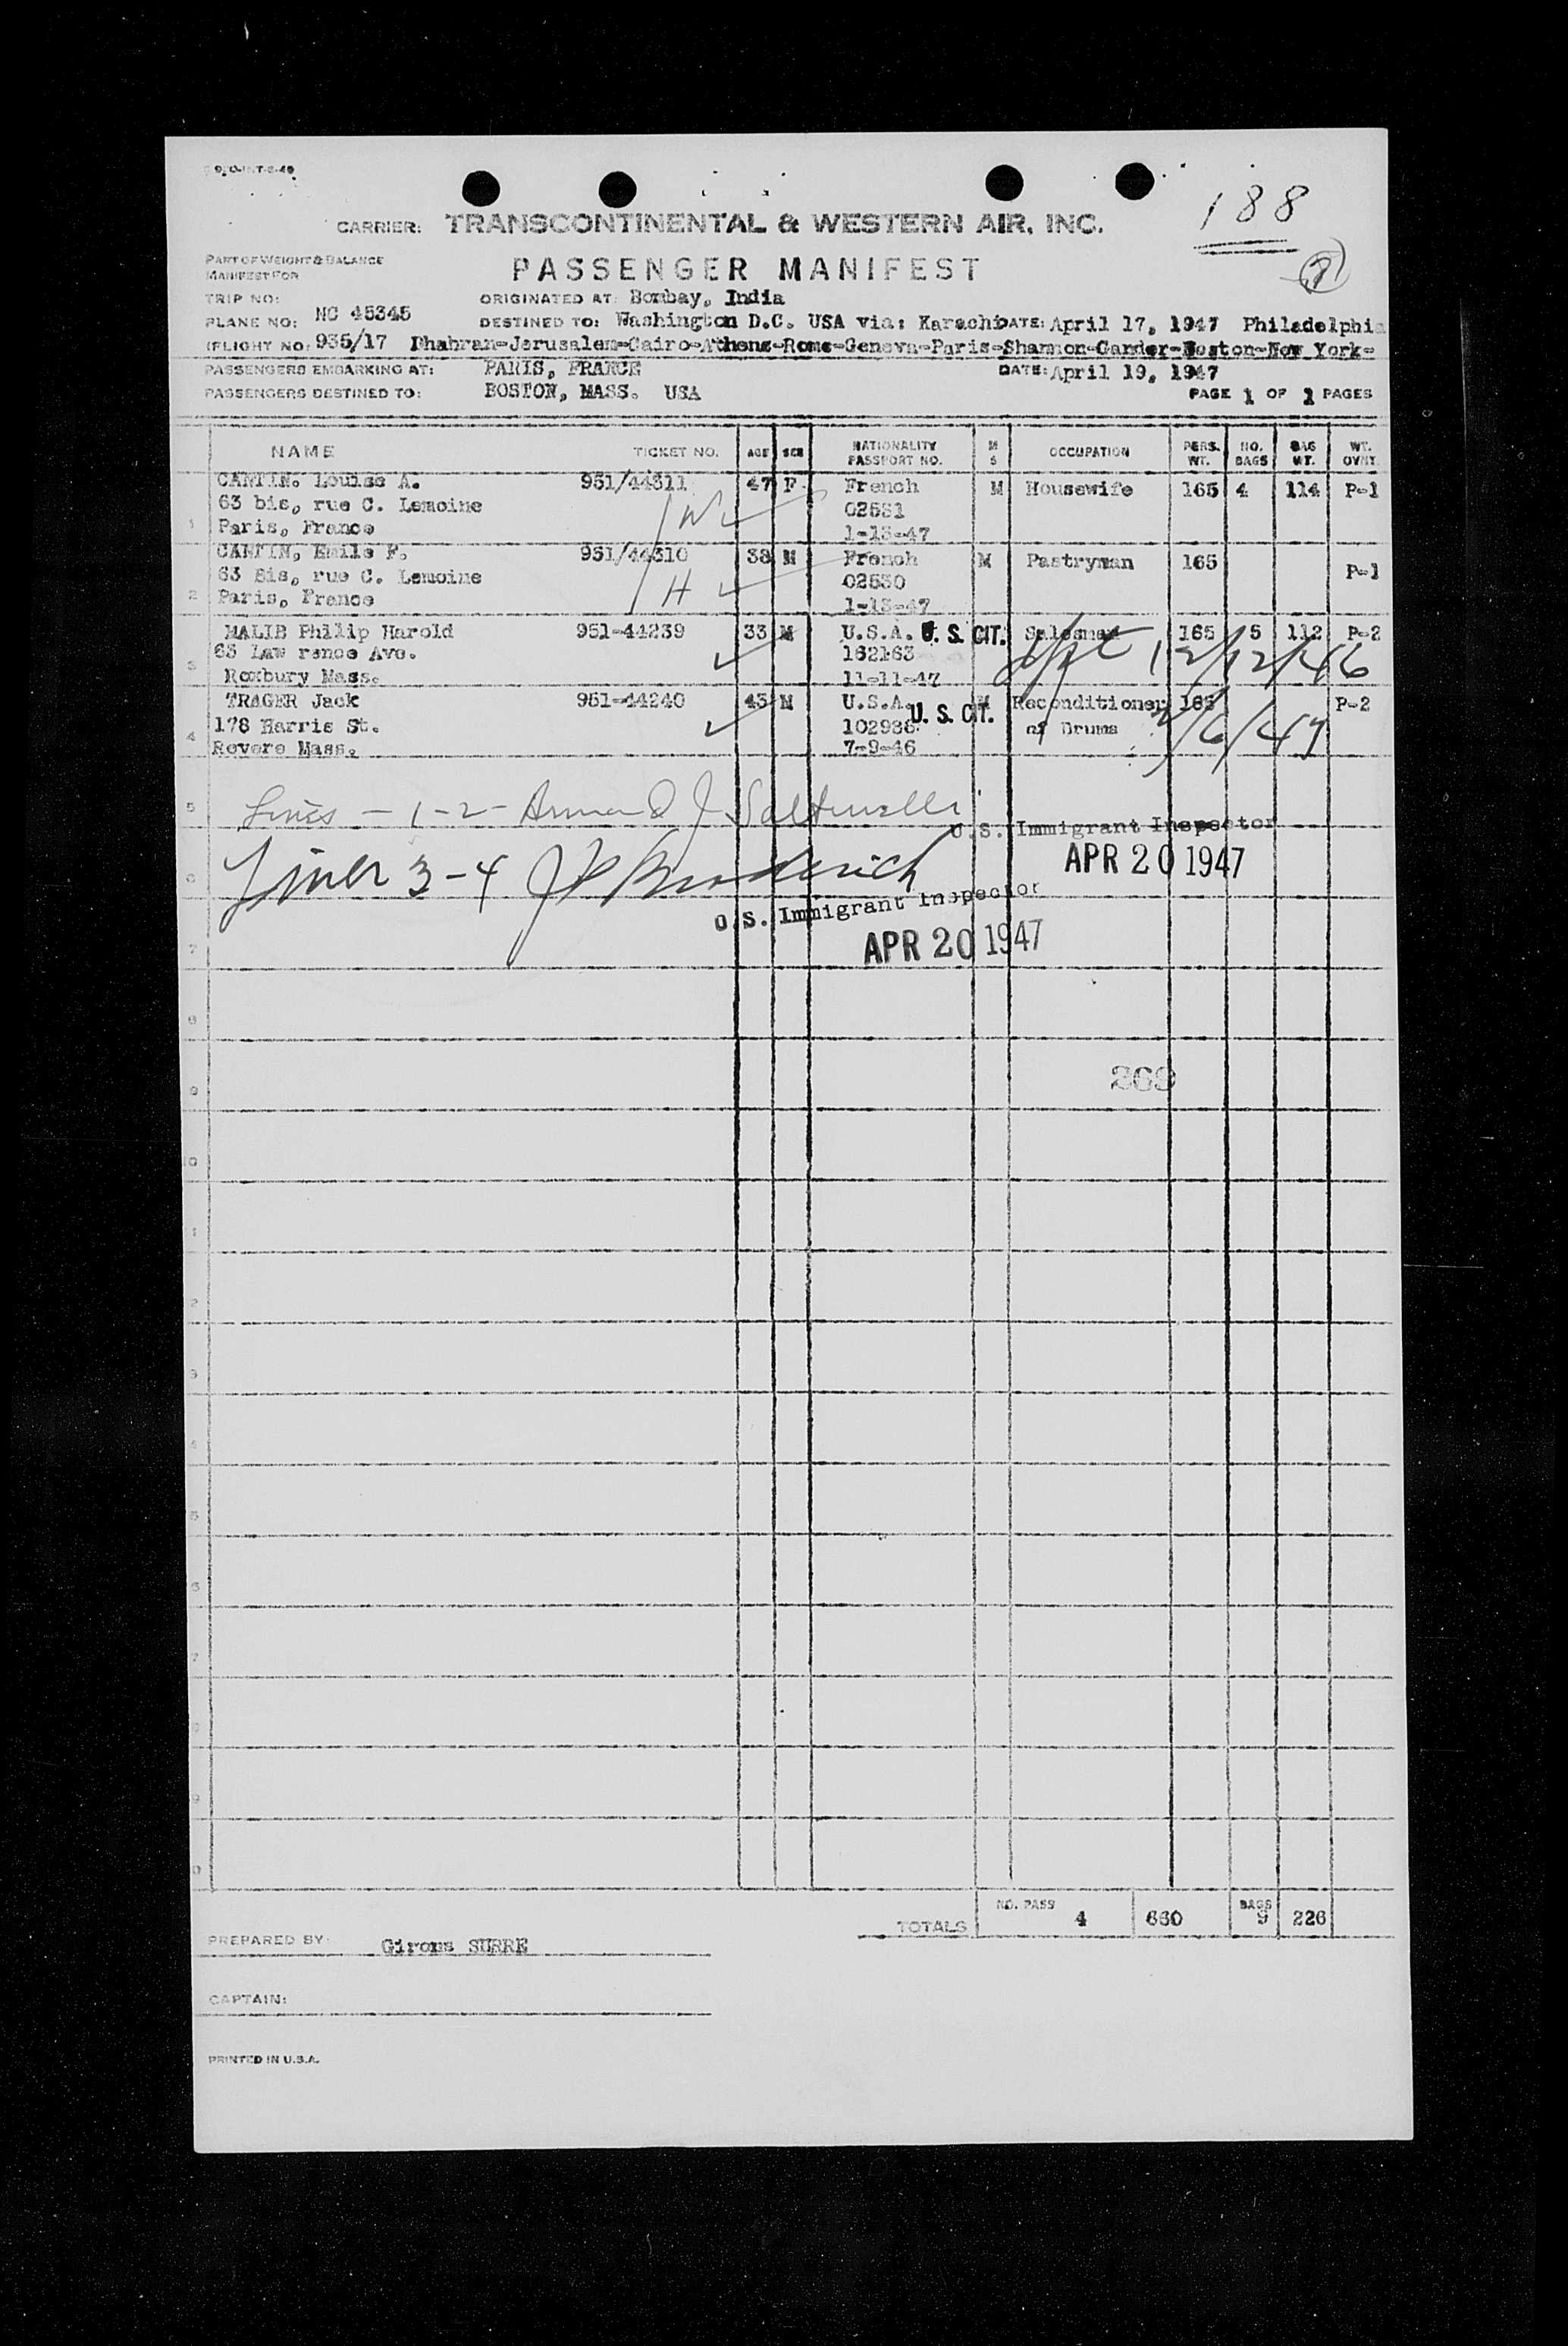 188
CARRIER: TRANSCONTINENTAL & WESTERN AIR, INC.
PART OF WEIGHT & BALANCE
MANIFEST FOR
PASSENGER MANIFEST
TRIP NO:
ORIGINATED AT: Bombay, India
PLANE NO: NC 45345
DESTINED TO: Washington D.C. USA via: Karachi DATE: April 17, 1947 Philadelphia
FLIGHT NO: 935/17 Dhahran-Jerusalem-Cairo-Athens-Rome-Geneva-Paris-Shannon-Gander-Boston-New York-
PASSENGERS EMBARKING AT: PARIS, FRANCE DATE: April 19, 1947
PASSENGERS DESTINED TO: BOSTON, MASS. USA PAGE 1 OF 1 PAGES
NAME TICKET NO. AGE SEX NATIONALITY PASSPORT NO. M S OCCUPATION PERS. WT. NO. BAGS BAG WT. WT. OVNT
CANTIN. Louise A. 951/44311 47 F French M Housewife 165 4 114 P-1
63 bis, rue C. Lemoine W 02531
1 Paris, France 1-13-47
CANTIN, Emile F. 951/44310 38 M French M Pastryman 165 P-1
63 Bis, rue C. Lemoine H 02530
2 Paris, France 1-13-47
MALIB Philip Harold 951-44239 33 M U.S.A. U. S. CIT. Salesman 165 5 112 P-2
63 Law rence Ave. 162163
3 Roxbury Mass. 11-11-47 12/12/46
TRAGER Jack 951-44240 43 M U.S.A. U. S. CIT. M Reconditioner 165 P-2
178 Harris St. 102986 of Drums /6/47
4 Revere Mass. 7-9-46
5 Lines - 1-2- Armand J
U.S. Immigrant Inspector
APR 20 1947
6 Lines 3-4 JP Broderick
U.S. Immigrant Inspector
APR 20 1947
7
8
269
9
0
1
2
3
4
5
6
7
9
0
TOTALS NO. PASS 4 660 BAGS 9 226
PREPARED BY: Girons SURRE
CAPTAIN:
PRINTED IN U.S.A.